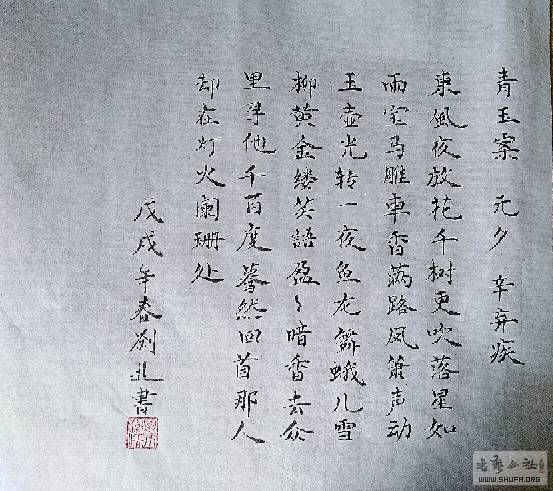 青玉案 元夕 辛弃疾
東風夜放花千树更吹落星如
雨宝马雕車香满路凤箫声动
玉壶光转一夜鱼龙舞蛾儿雪
柳黄金缕笑語盈〻暗香去众
里寻他千百度蓦然回首那人
却在灯火阑珊处
戊戌年春劉書
书法公社
WWW.SHUFA.ORG